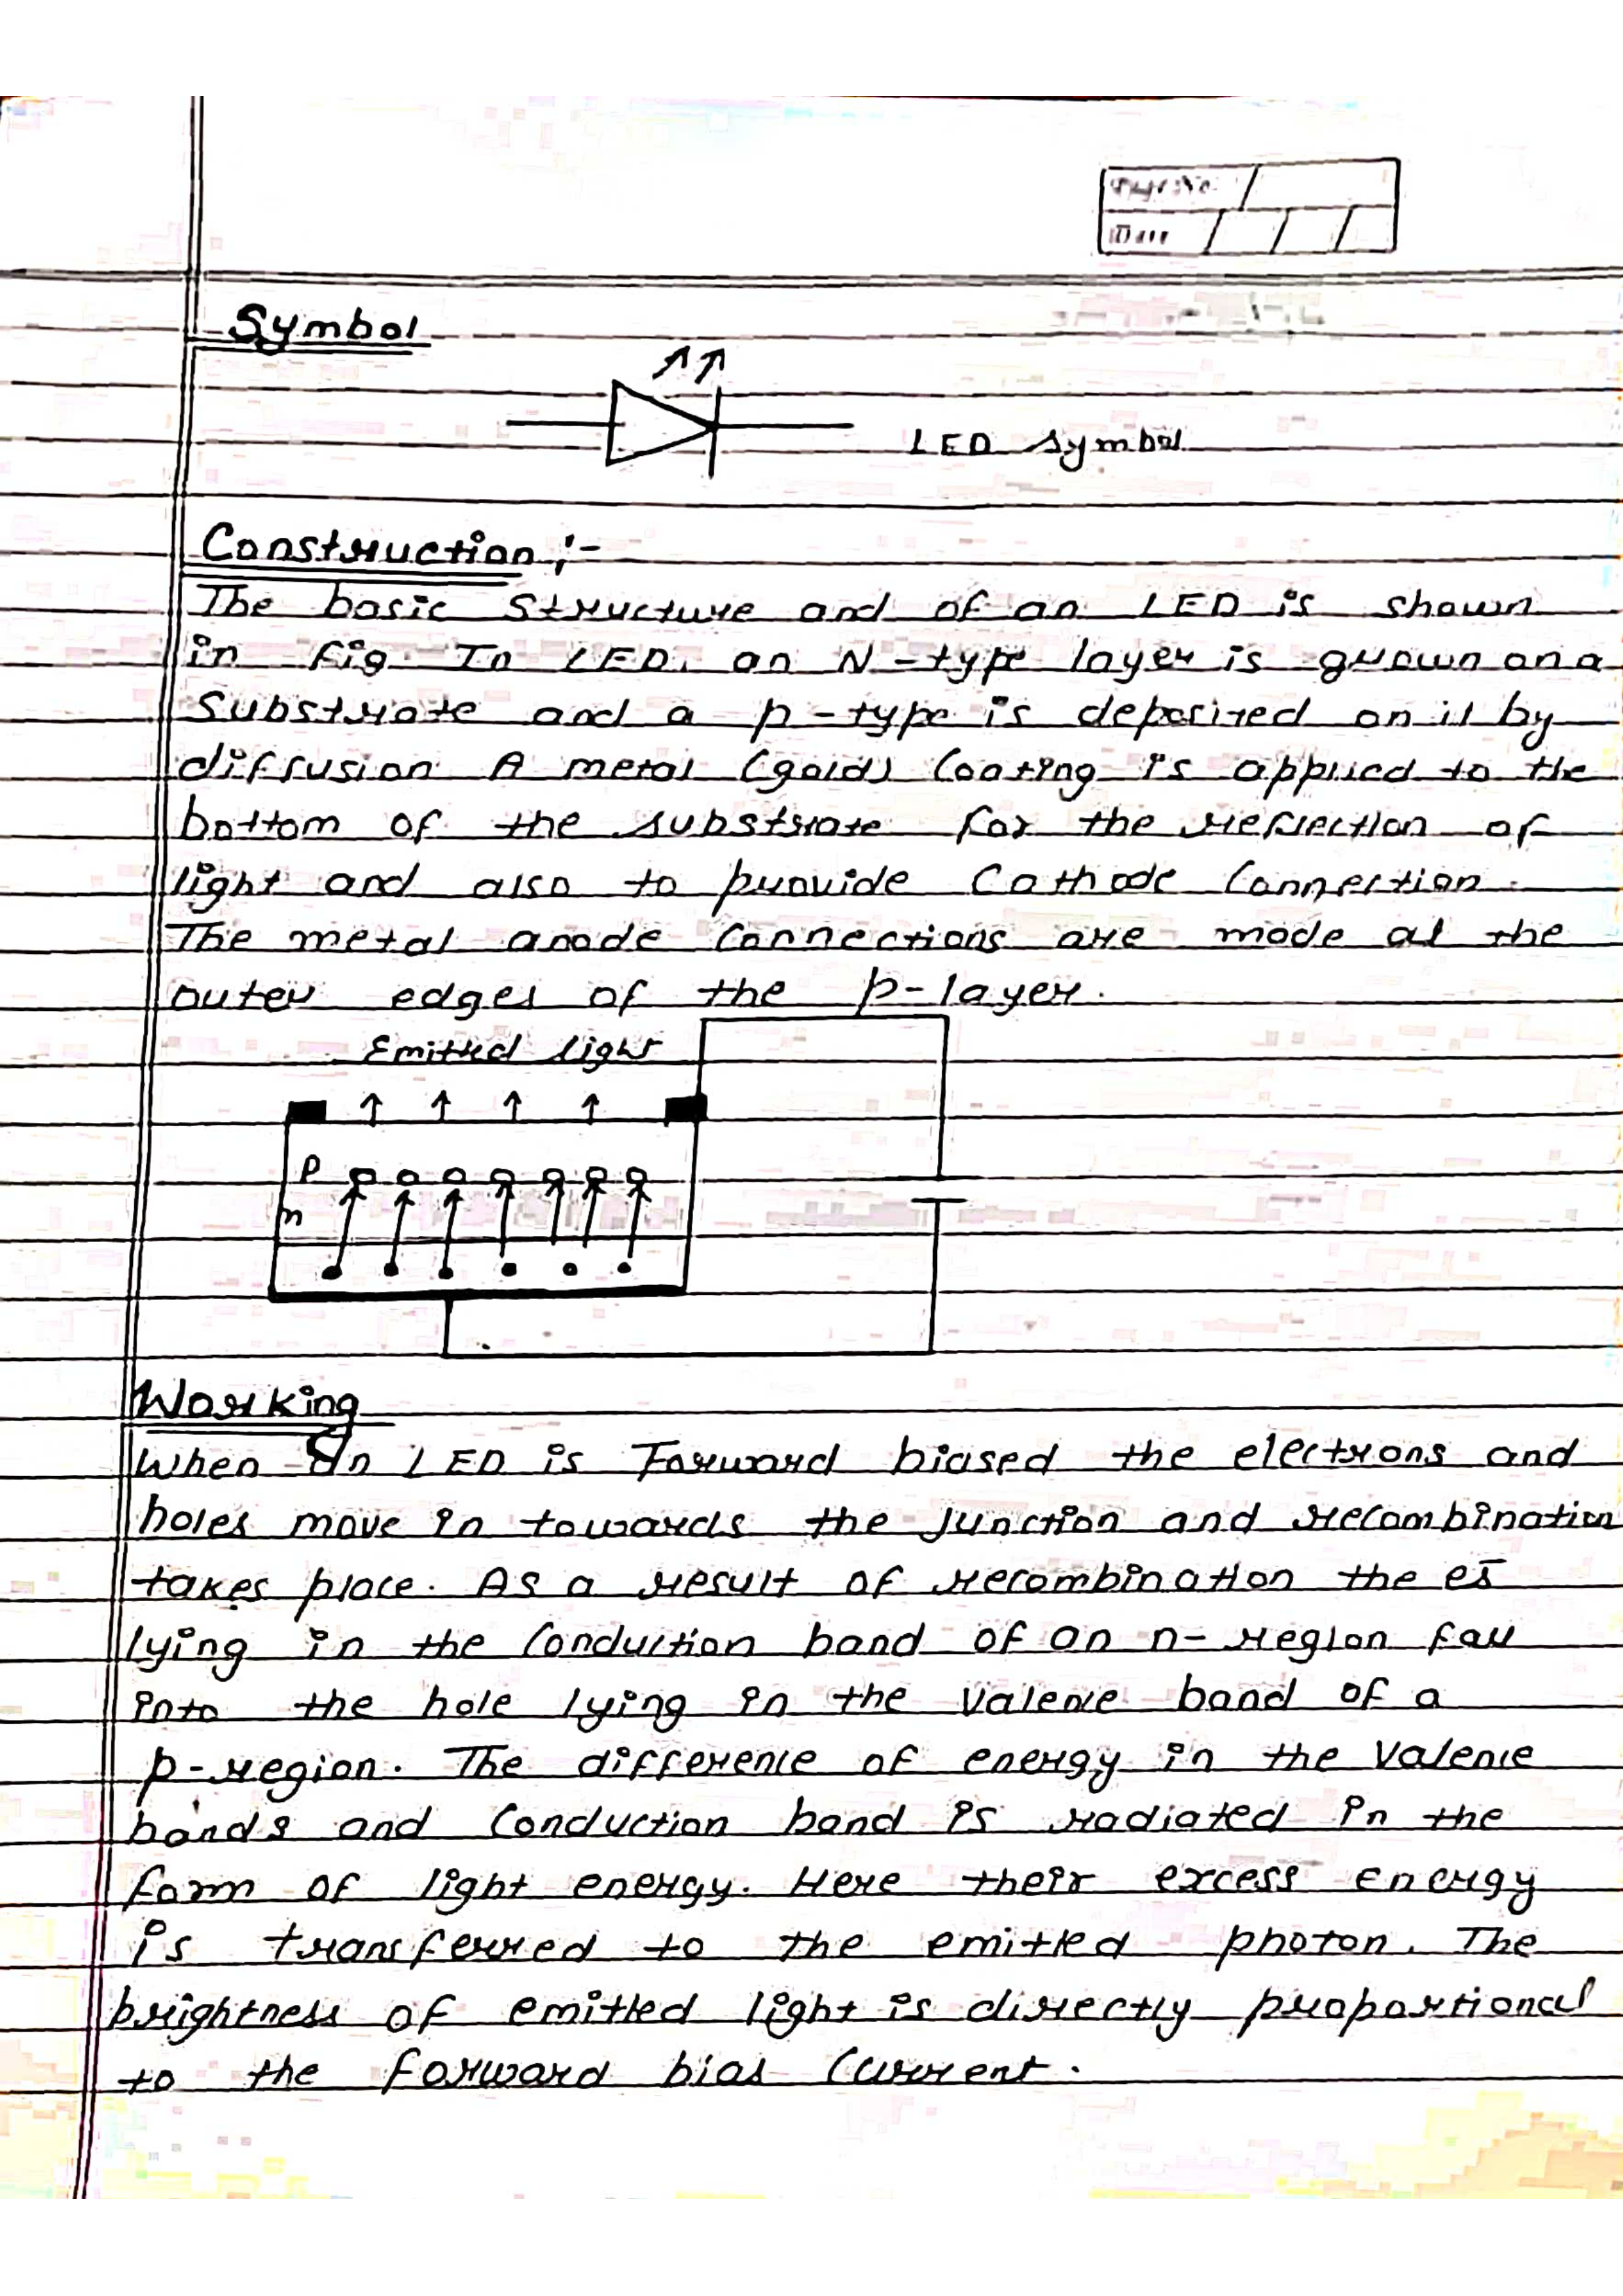 Page No.
Date
Symbol
LED symbol
Construction :-
The basic Structure and of an LED is shown
in fig. In LED. an N-type layer is grown on a
Substrate and a p-type is deposited on it by
diffusion A metal (gold) Coating is applied to the
bottom of the substrate for the reflection of
light and also to provide Cathode Connection.
The metal anode Connections are made at the
outer edges of the p-layer.
Emitted light
p
n
Working
When an LED is Forward biased the electrons and
holes move in towards the junction and recombination
takes place. As a result of recombination the es̄
lying in the Conduction band of an n-region fall
into the hole lying in the Valence band of a
p-region. The difference of energy in the Valence
bands and Conduction band is radiated in the
form of light energy. Here their excess Energy
is transferred to the emitted photon. The
brightness of emitted light is directly proportional
to the forward bias Current.